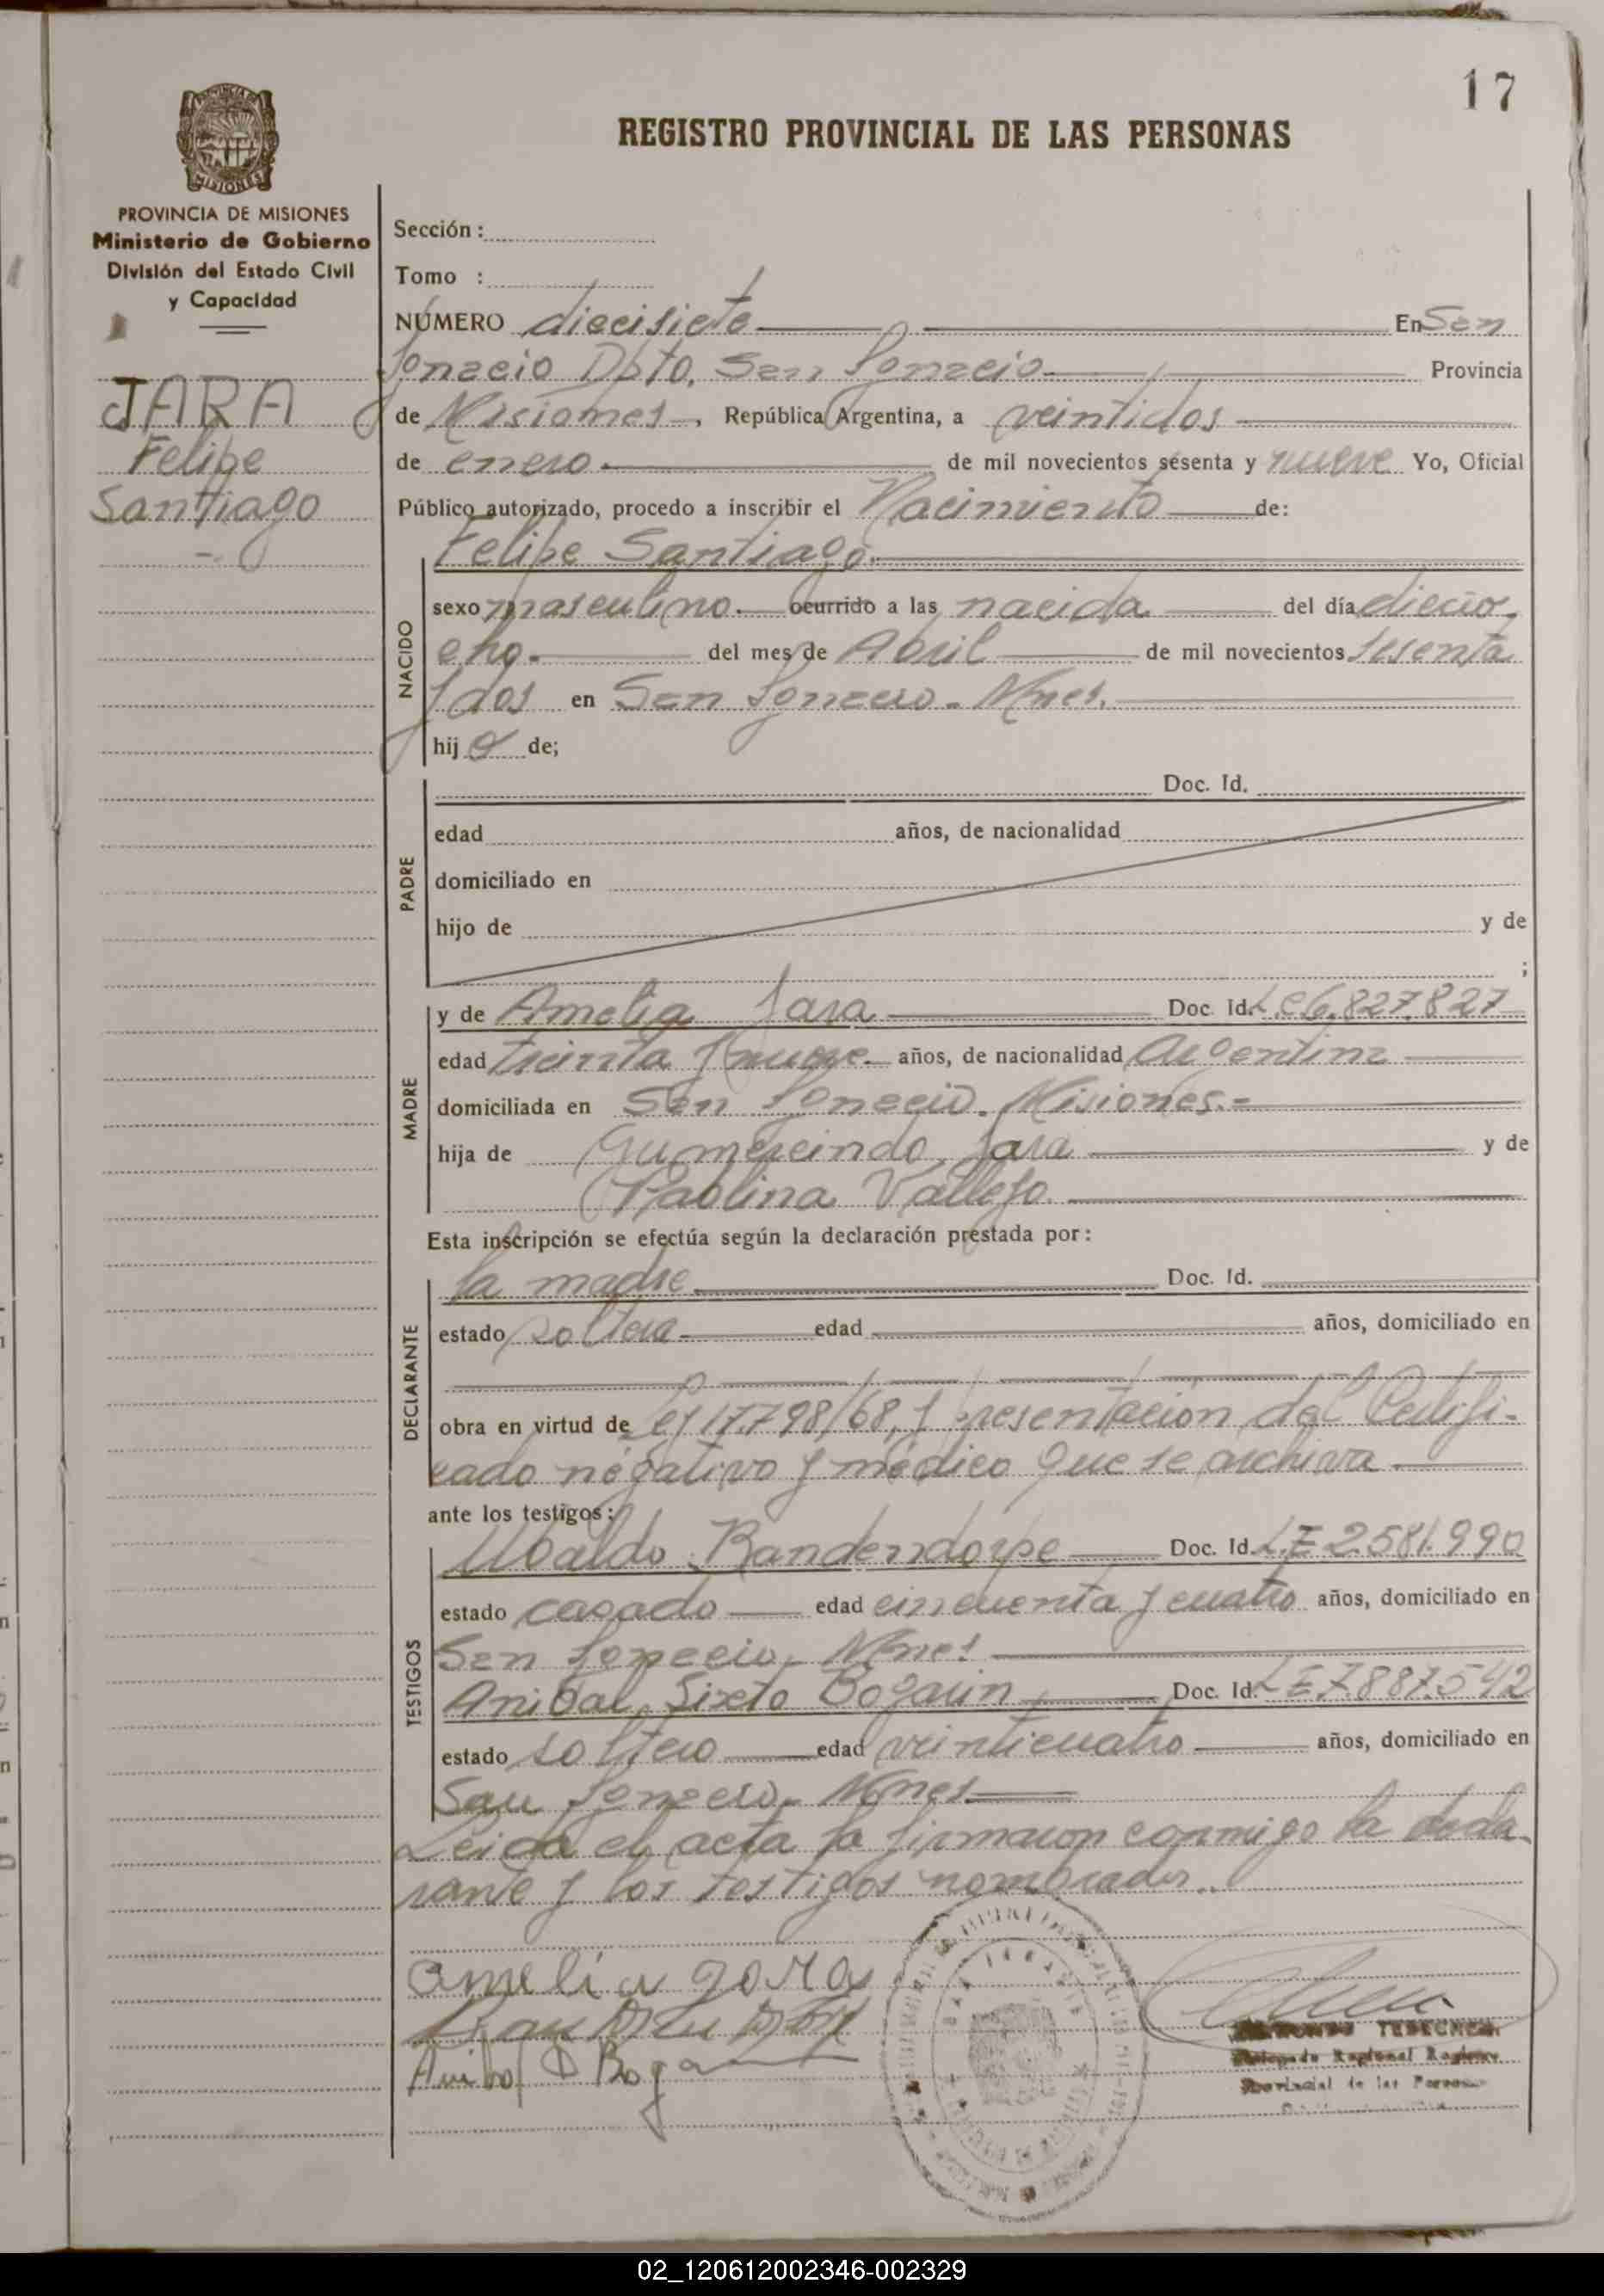 17
REGISTRO PROVINCIAL DE LAS PERSONAS
PROVINCIA DE MISIONES
Ministerio de Gobierno
División del Estado Civil
y Capacidad
JARA
Felipe
Santiago
Sección :
Tomo :
NÚMERO diecisiete En San
Ignacio Dpto. San Ignacio Provincia
de Misiones, República Argentina, a veintidos
de enero de mil novecientos sesenta y nueve Yo, Oficial
Público autorizado, procedo a inscribir el Nacimiento de:
Felipe Santiago
NACIDO
sexo masculino. ocurrido a las nacida del día diecio
cho. del mes de Abril de mil novecientos sesenta
y dos en San Ignacio - Mnes.
hij o de;
PADRE
Doc. Id.
edad años, de nacionalidad
domiciliado en
hijo de y de
;
MADRE
y de Amelia Jara Doc. Id. L.C 6.827.827
edad treinta y nueve años, de nacionalidad Argentina
domiciliada en San Ignacio. Misiones.-
hija de Gumercindo Jara y de
Pablina Vallejo.
Esta inscripción se efectúa según la declaración prestada por:
DECLARANTE
la madre Doc. Id.
estado soltera edad años, domiciliado en
obra en virtud de Ley 17.798/68, y presentación del Certifi-
cado negativo y médico que se archiva
ante los testigos:
TESTIGOS
Ubaldo Randendorpe Doc. Id. L.E 2.581.990
estado casado edad cincuenta y cuatro años, domiciliado en
San Ignacio, Mnes
Anibal Sixto Bogarin Doc. Id. L E 7.887.542
estado soltero edad veinticuatro años, domiciliado en
San Ignacio, Mnes
Leida el acta la firmaron conmigo la decla
rante y los testigos nombrados..
amelia jara
Anibal S Boga
Delegado Regional Registro
Provincial de las Personas
02_120612002346-002329